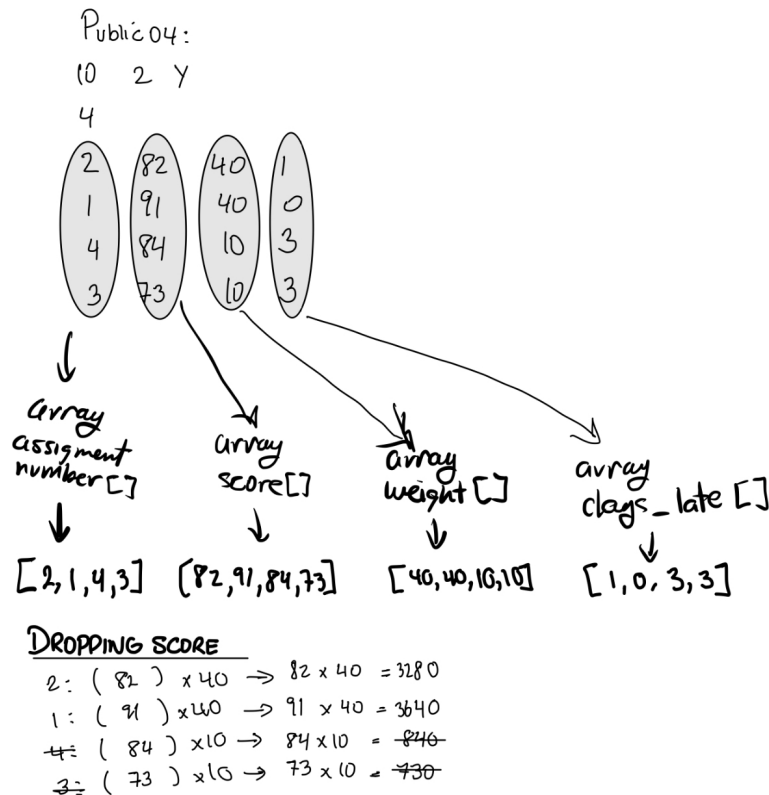 Public04:
10 2 Y
4
2 82 40 1
1 91 40 0
4 84 10 3
3 73 10 3
array assigment number[]
array score[]
array weight[]
array days_late []
[2,1,4,3] [82,91,84,73] [40,40,10,10] [1,0,3,3]
DROPPING SCORE
2: ( 82 ) x 40 → 82 x 40 = 3280
1: ( 91 ) x40 → 91 x 40 = 3640
4: ( 84 ) x10 → 84 x 10 = 840
3: ( 73 ) x10 → 73 x 10 = 730